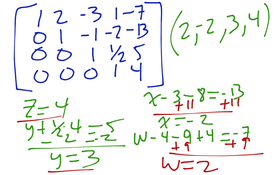 1 2 -3 1 -7
0 1 -1 -2 -13
0 0 1 ½ 5
0 0 0 1 4
(2,-2,3,4)
z=4
y+½·4=5
-2 -2
y=3
x-3-8=-13
+11 +11
x=-2
w-4-9+4=-7
+9 +9
w=2